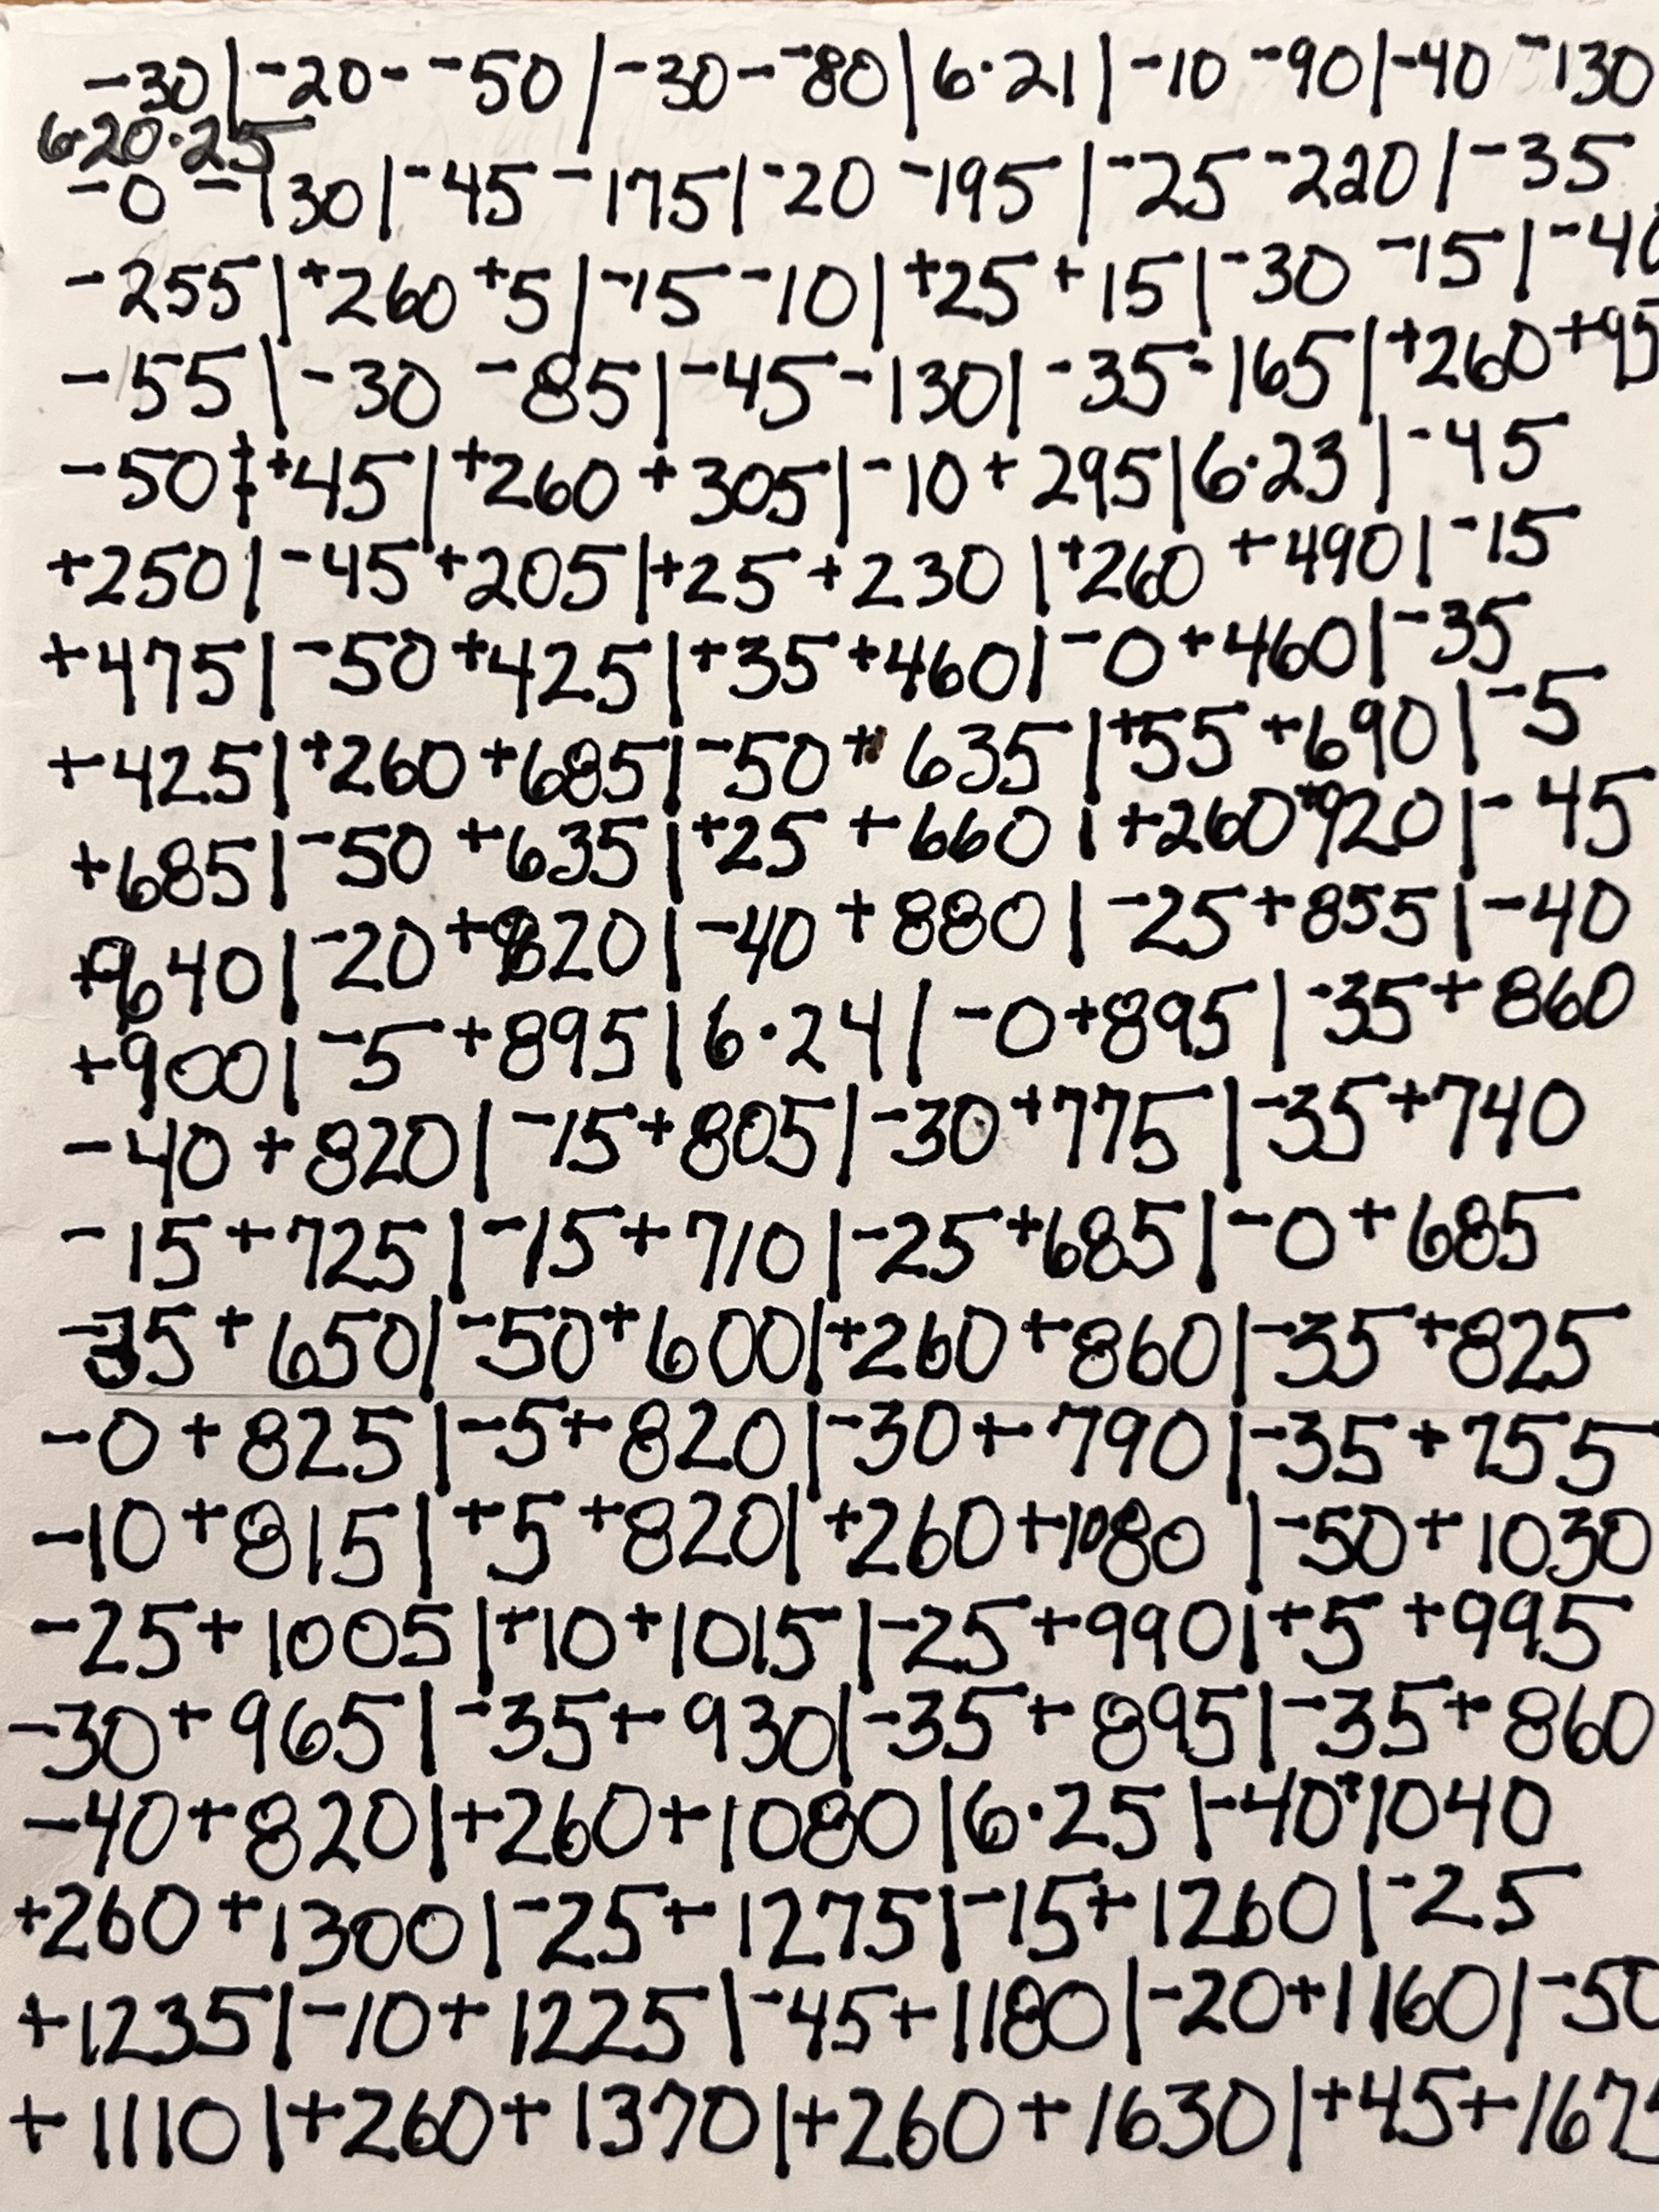 -30|-20- -50|-30--80|6·21|-10 -90|-40 -130
6·20·25
-0 -130|-45 -175|-20 -195|-25 -220|-35
-255|+260 +5|-15 -10|+25 +15|-30 -15|-40
-55|-30 -85|-45 -130|-35 -165|+260 +95
-50 | +45|+260 +305|-10 +295|6·23|-45
+250|-45 +205|+25 +230|+260 +490|-15
+475|-50 +425|+35 +460|-0 +460|-35
+425|+260 +685|-50 + 635|+55 +690|-5
+685|-50 +635|+25 +660|+260 +920|-45
+640|-20 +920|-40 +880|-25 +855|-40
+900|-5 +895|6·24|-0 +895|-35 +860
-40 +820|-15 +805|-30 +775|-35 +740
-15 +725|-15 +710|-25 +685|-0 +685
-35 +650|-50 +600|+260 +860|-35 +825
-0 +825|-5 +820|-30 +790|-35 +755
-10 +815|+5 +820|+260 +1080|-50 +1030
-25 +1005|+10 +1015|-25 +990|+5 +995
-30 +965|-35 +930|-35 +895|-35 +860
-40 +820|+260 +1080|6·25|-40 +1040
+260 +1300|-25 +1275|-15 +1260|-25
+1235|-10 +1225|-45 +1180|-20 +1160|-50
+1110|+260 +1370|+260 +1630|+45 +1675